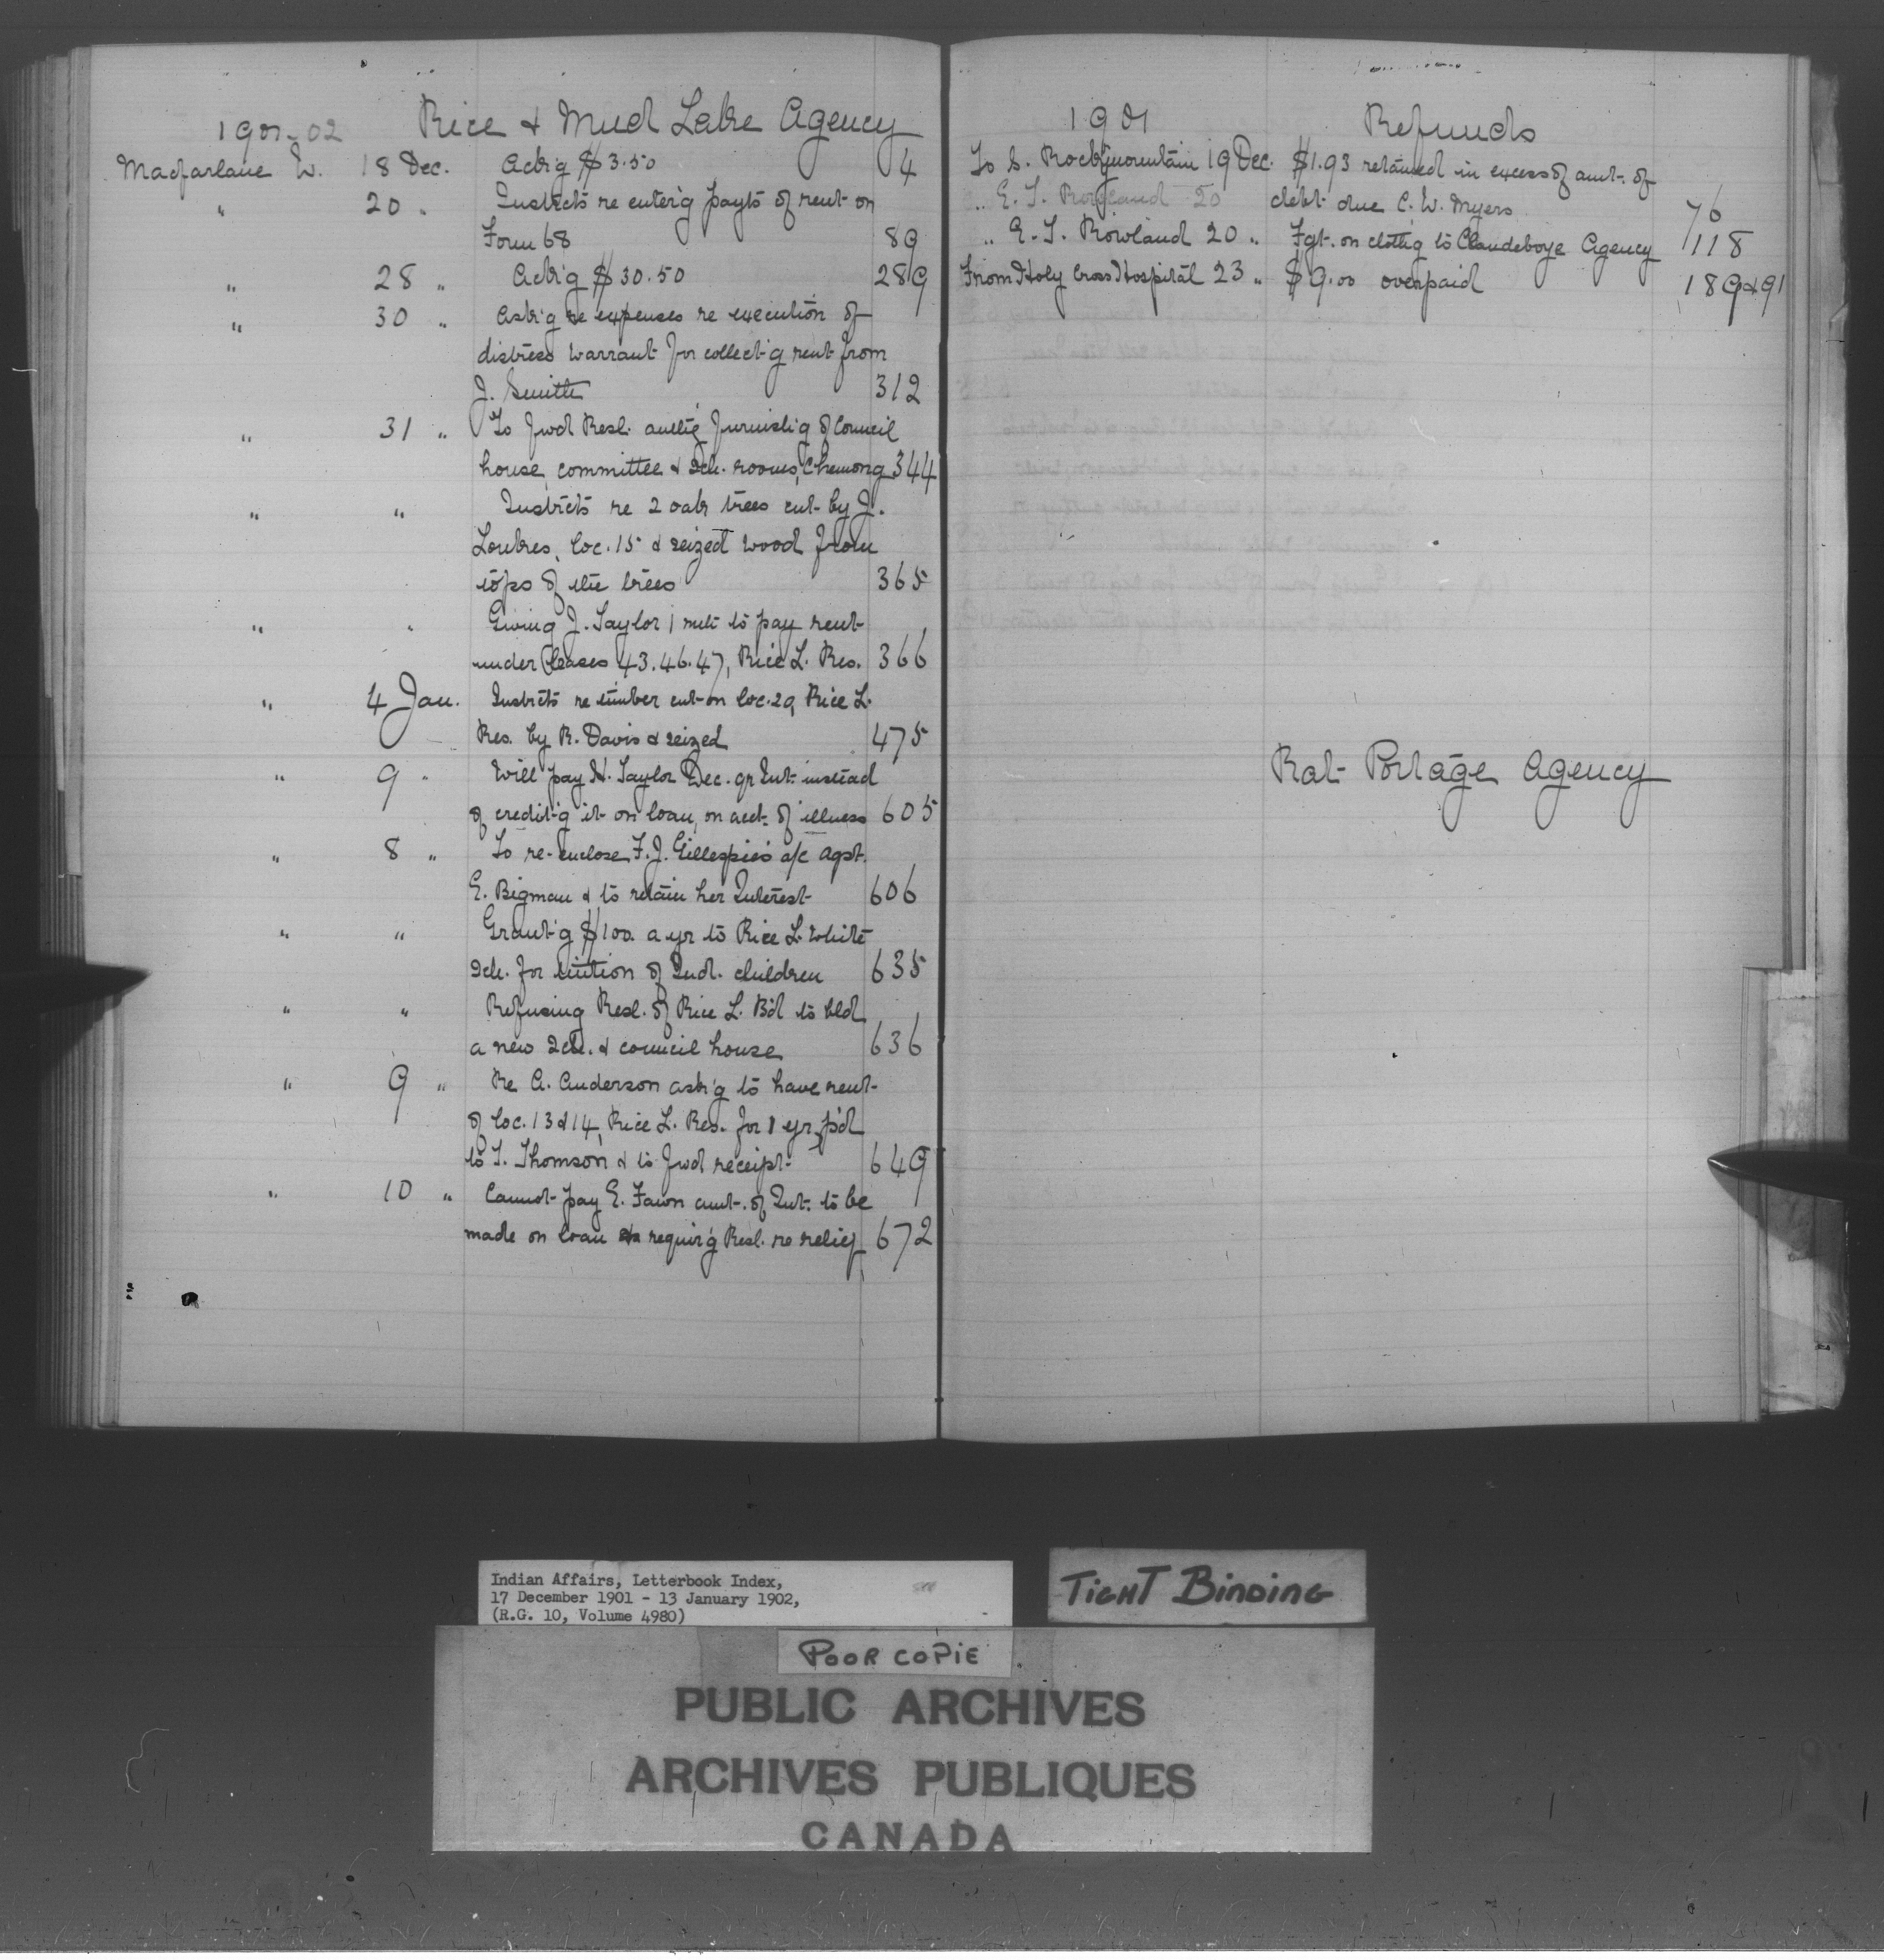 1901-02 Rice & Mud Lake Agency
Macfarlane W. 18 Dec. Ack'g $3.50 4
" 20 " Instrcts re enter'g payts of rent on
Form 68 89
" 28 " Ack'g $30.50 289
" 30 " Ask'g re expenses re execution of
distress warrant for collect'g rent from
J. Smith 312
" 31 " To fwd Resl. auth'g furnish'g of Council
house, committee & Sch. rooms, Chemong 344
" " Instrcts re 2 oak trees cut by J.
Loukes, loc. 15 & seized wood from
tops of the trees 365
" " Giving J. Taylor 1 mth to pay rent
under leases 43.46.47, Rice L. Res. 366
" 4 Jan. Instrcts re timber cut on loc. 29, Rice L.
Res. by R. Davis & seized 475
" 9 " Will pay H. Taylor Dec. qr Int. instead
of credit'g it on loan, on acct. of illness 605
" 8 " To re-enclose F. J. Gillespie's a/c agst.
E. Bigman & to retain her Interest 606
" " Grant'g $100. a yr to Rice L. White
Sch. for tuition of Ind. children 635
" " Refusing Resl. of Rice L. Bd to bld
a new Sch. & council house 636
" 9 " Re A. Anderson ask'g to have rent
of loc. 13 & 14, Rice L. Res. for 1 yr p'd
to T. Thomson & to fwd receipt 649
" 10 " Cannot pay E. Fawn amt. of Int. to be
made on loan & requir'g Resl. re relief 672
1901 Refunds
To S. Rockymountain 19 Dec. $1.93 retained in excess of amt. of
" E. T. Rowland 20 debt due C. W. Myers 76
" E. T. Rowland 20 " Fgt. on cloth'g to Clandeboye Agency 118
From Holy Cross Hospital 23 " $9.00 overpaid 189 & 91
Rat Portage Agency
Indian Affairs, Letterbook Index,
17 December 1901 - 13 January 1902,
(R.G. 10, Volume 4980)
TIGHT BINDING
POOR COPIE
PUBLIC ARCHIVES
ARCHIVES PUBLIQUES
CANADA